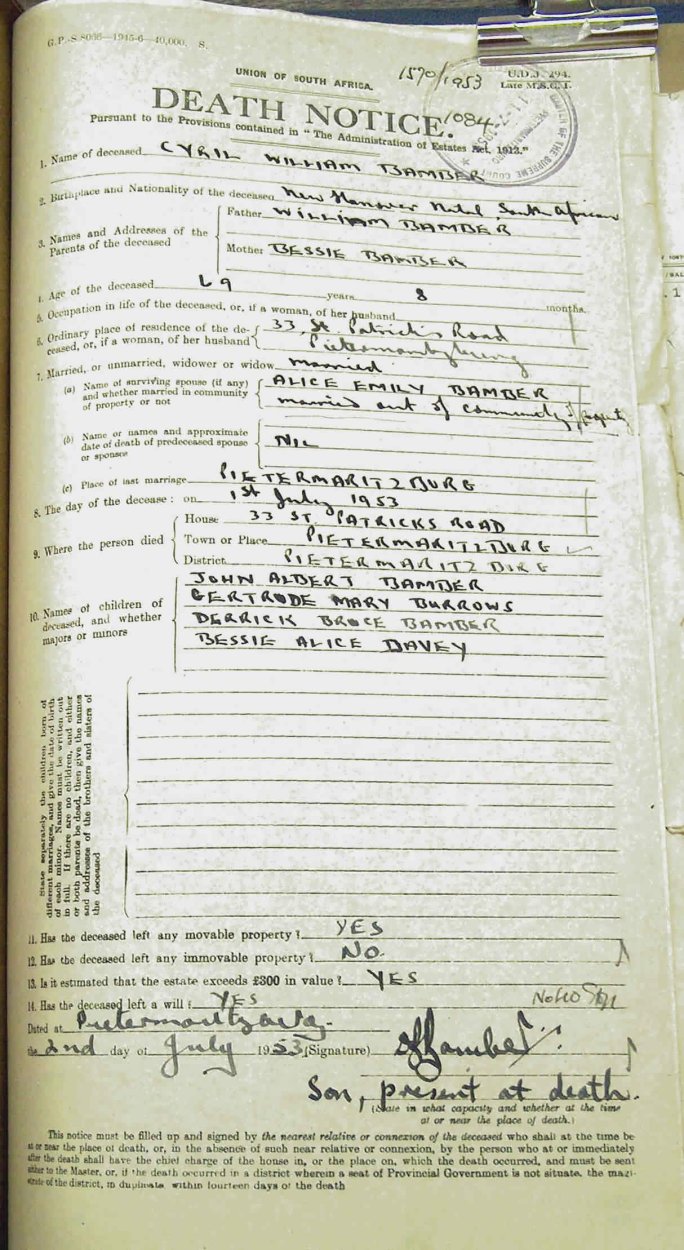 G.P.-S.8066—1945-6—40,000. S.
1570/1953
U.D.J. 294.
Late M.S.C.I.
UNION OF SOUTH AFRICA.
DEATH NOTICE.
1084
Pursuant to the Provisions contained in "The Administration of Estates Act, 1913."
1. Name of deceased CYRIL WILLIAM BAMBER
2. Birthplace and Nationality of the deceased New Hanover Natal South African
3. Names and Addresses of the Parents of the deceased
Father WILLIAM BAMBER
Mother BESSIE BAMBER
4. Age of the deceased 69 years 8 months.
5. Occupation in life of the deceased, or, if a woman, of her husband
6. Ordinary place of residence of the deceased, or, if a woman, of her husband
33, St. Patrick's Road
Pietermaritzburg
7. Married, or unmarried, widower or widow married
(a) Name of surviving spouse (if any) and whether married in community of property or not
ALICE EMILY BAMBER
married out of community of property
(b) Name or names and approximate date of death of predeceased spouse or spouses
NIL
(c) Place of last marriage PIETERMARITZBURG
8. The day of the decease: on 1st July 1953
9. Where the person died
House 33 ST. PATRICKS ROAD
Town or Place PIETERMARITZBURG
District PIETERMARITZBURG
10. Names of children of deceased, and whether majors or minors
JOHN ALBERT BAMBER
GERTRUDE MARY BURROWS
DERRICK BRUCE BAMBER
BESSIE ALICE DAVEY
State separately the children born of
different marriages, and give the date of birth
of each minor. Names must be written out
in full. If there are no children, and either
or both parents be dead, then give the names
and addresses of the brothers and sisters of
the deceased
11. Has the deceased left any movable property? YES
12. Has the deceased left any immovable property? NO.
13. Is it estimated that the estate exceeds £300 in value? YES
14. Has the deceased left a will? YES
Dated at Pietermaritzburg.
the 2nd day of July 1953 (Signature)
Son, present at death.
(State in what capacity and whether at the time
at or near the place of death.)
This notice must be filled up and signed by the nearest relative or connexion of the deceased who shall at the time be
at or near the place of death, or, in the absence of such near relative or connexion, by the person who at or immediately
after the death shall have the chief charge of the house in, or the place on, which the death occurred, and must be sent
either to the Master, or, if the death occurred in a district wherein a seat of Provincial Government is not situate, the magi-
strate of the district, in duplicate, within fourteen days of the death